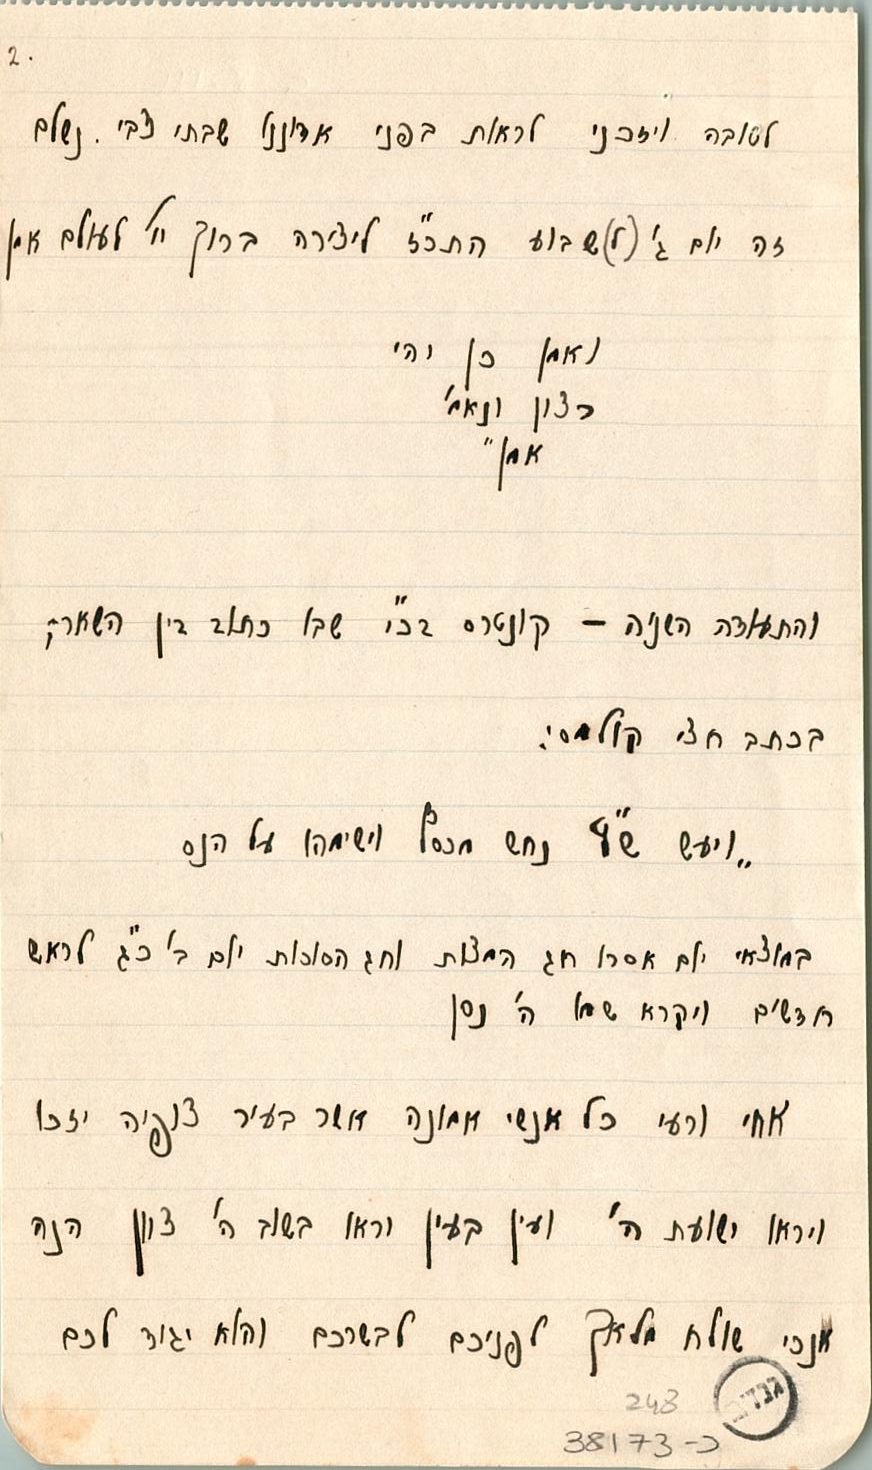 2.
לטובה ויזכני לראות בפני אדוננו שבתי צבי. נשלם
זה יום ג' (ל)שבוע התכ"ז ליצירה ברוך יי' לעולם אמן
ואמן כן יהי
רצון ונאמ'
אמן"
והתעודה השניה – קונטרס בכ"י שבו כתוב בין השאר:
בכתב חצי קולמוס:
"ויעש ש"ץ נחש מכסף וישימהו על הנס
במוצאי יום אסרו חג המצות וחג הסוכות יום ב' כ"ג לראש
חדשים ויקרא שמו ה' נסי
אחי ורעי כל אנשי אמונה אשר בעיר צופיה יזכו
ויראו ישועת ה' ועין בעין וראו בשוב ה' ציון הנה
אנכי שולח מלאך לפניכם לבשרכם והוא יגיד לכם
גנזים
248
כ-38173